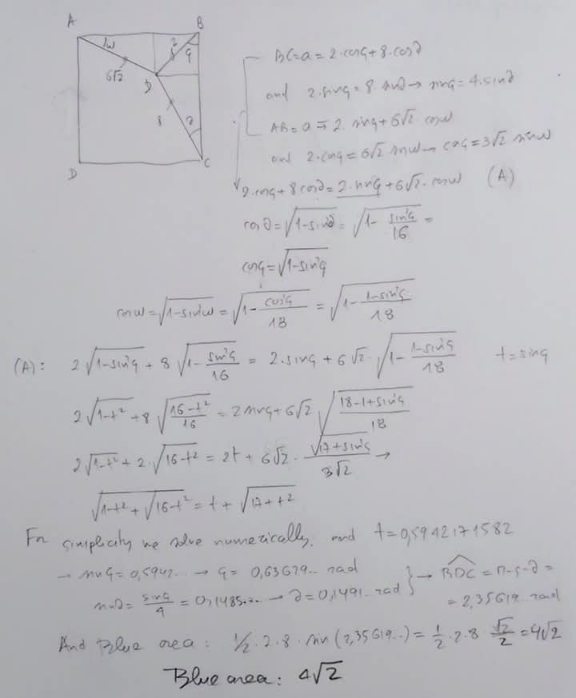 A
B
ω
2
φ
6√2
D
8
∂
D
C
BC=a=2·cosφ+8·cos∂
and 2·sinφ=8·sin∂→sinφ=4·sin∂
AB=a=2·sinφ+6√2 cosω
and 2·cosφ=6√2 sinω→cosφ=3√2 sinω
2·cosφ+8cos∂=2·sinφ+6√2·cosω (A)
cos∂=√(1-sin²∂)=√(1-sin²φ/16)=
cosφ=√(1-sin²φ)
cosω=√(1-sin²ω)=√(1-cos²φ/18)=√(1-(1-sin²φ)/18)
(A): 2√(1-sin²φ)+8√(1-sin²φ/16)=2·sinφ+6√2·√(1-(1-sin²φ)/18) t=sinφ
2√(1-t²)+8√((16-t²)/16)=2sinφ+6√2√((18-1+sin²φ)/18)
2√(1-t²)+2·√(16-t²)=2t+6√2·√(17+sin²φ)/3√2→
√(1-t²)+√(16-t²)=t+√(17+t²)
For simplicity we solve numerically, and t=0,5942171582
→sinφ=0,5942...→φ=0,63629... rad
sin∂=sinφ/4=0,1485...→∂=0,1491. rad
→BDC=π-φ-∂=
=2,35619.. rad
And Blue area: 1/2·2·8·sin(2,35619..)=1/2·2·8 √2/2=4√2
Blue area: 4√2